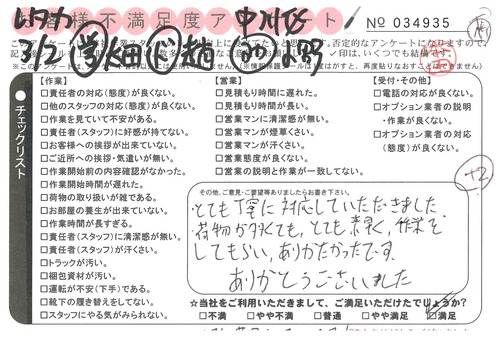 お客様不満足度アンケート
No 034935
中川区
3/2
【作業】
□責任者の対応(態度)が良くない。
□他のスタッフの対応(態度)が良くない。
□作業を見ていて不安がある。
□責任者(スタッフ)に好感が持てない。
□お客様への挨拶が出来ていない。
□ご近所への挨拶・気遣いが無い。
□作業開始前の内容確認がなかった。
□作業開始時間が遅れた。
□荷物の取り扱いが雑である。
□お部屋の養生が出来ていない。
□作業時間が長すぎる。
□責任者(スタッフ)に清潔感が無い。
□責任者(スタッフ)が汗くさい。
□トラックが汚い。
□梱包資材が汚い。
□運転が不安(下手)である。
□靴下の履き替えをしてない。
□スタッフにやる気がみられない。
【営業】
□見積もり時間に遅れた。
□見積もり時間が長い。
□営業マンに清潔感が無い。
□営業マンが煙草くさい。
□営業マンが汗くさい。
□営業態度が良くない。
□営業の説明と作業が一致してない。
【受付・その他】
□電話の対応が良くない。
□オプション業者の説明
・作業が良くない。
□オプション業者の対応
(態度)が良くない。
チェックリスト
+2
その他、ご意見・ご要望等ありましたらお書き下さい。
とても丁寧に対応していただきました。
荷物が多くても、とても素早く、作業を
してもらい、ありがたかったです。
ありがとうございました
☆当社をご利用いただきまして、ご満足いただけたでしょうか?
□不満 □やや不満 □普通 □やや満足 □満足